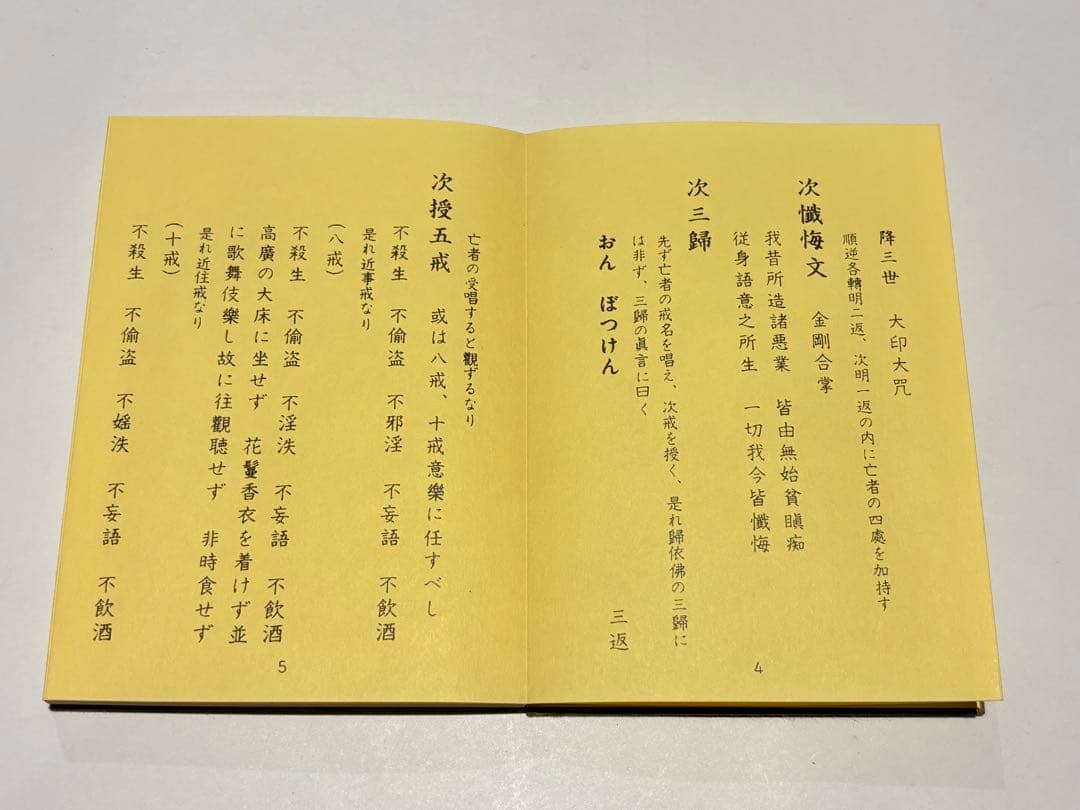 降三世　大印大咒
順逆各轉明二返、次明一返の内に亡者の四處を加持す
次懺悔文　金剛合掌
我昔所造諸悪業　皆由無始貧瞋痴
従身語意之所生　一切我今皆懺悔
次三歸
先ず亡者の戒名を唱え、次戒を授く、是れ歸依佛の三歸に
は非ず、三歸の眞言に曰く
おん　ぼつけん　三返
4
亡者の受唱すると觀ずるなり
次授五戒　或は八戒、十戒意樂に任すべし
不殺生　不偷盗　不邪淫　不妄語　不飲酒
是れ近事戒なり
（八戒）
不殺生　不偷盗　不淫泆　不妄語　不飲酒
高廣の大床に坐せず　花鬘香衣を着けず並
に歌舞伎樂し故に往觀聴せず　非時食せず
是れ近住戒なり
（十戒）
不殺生　不偷盗　不婬泆　不妄語　不飲酒
5